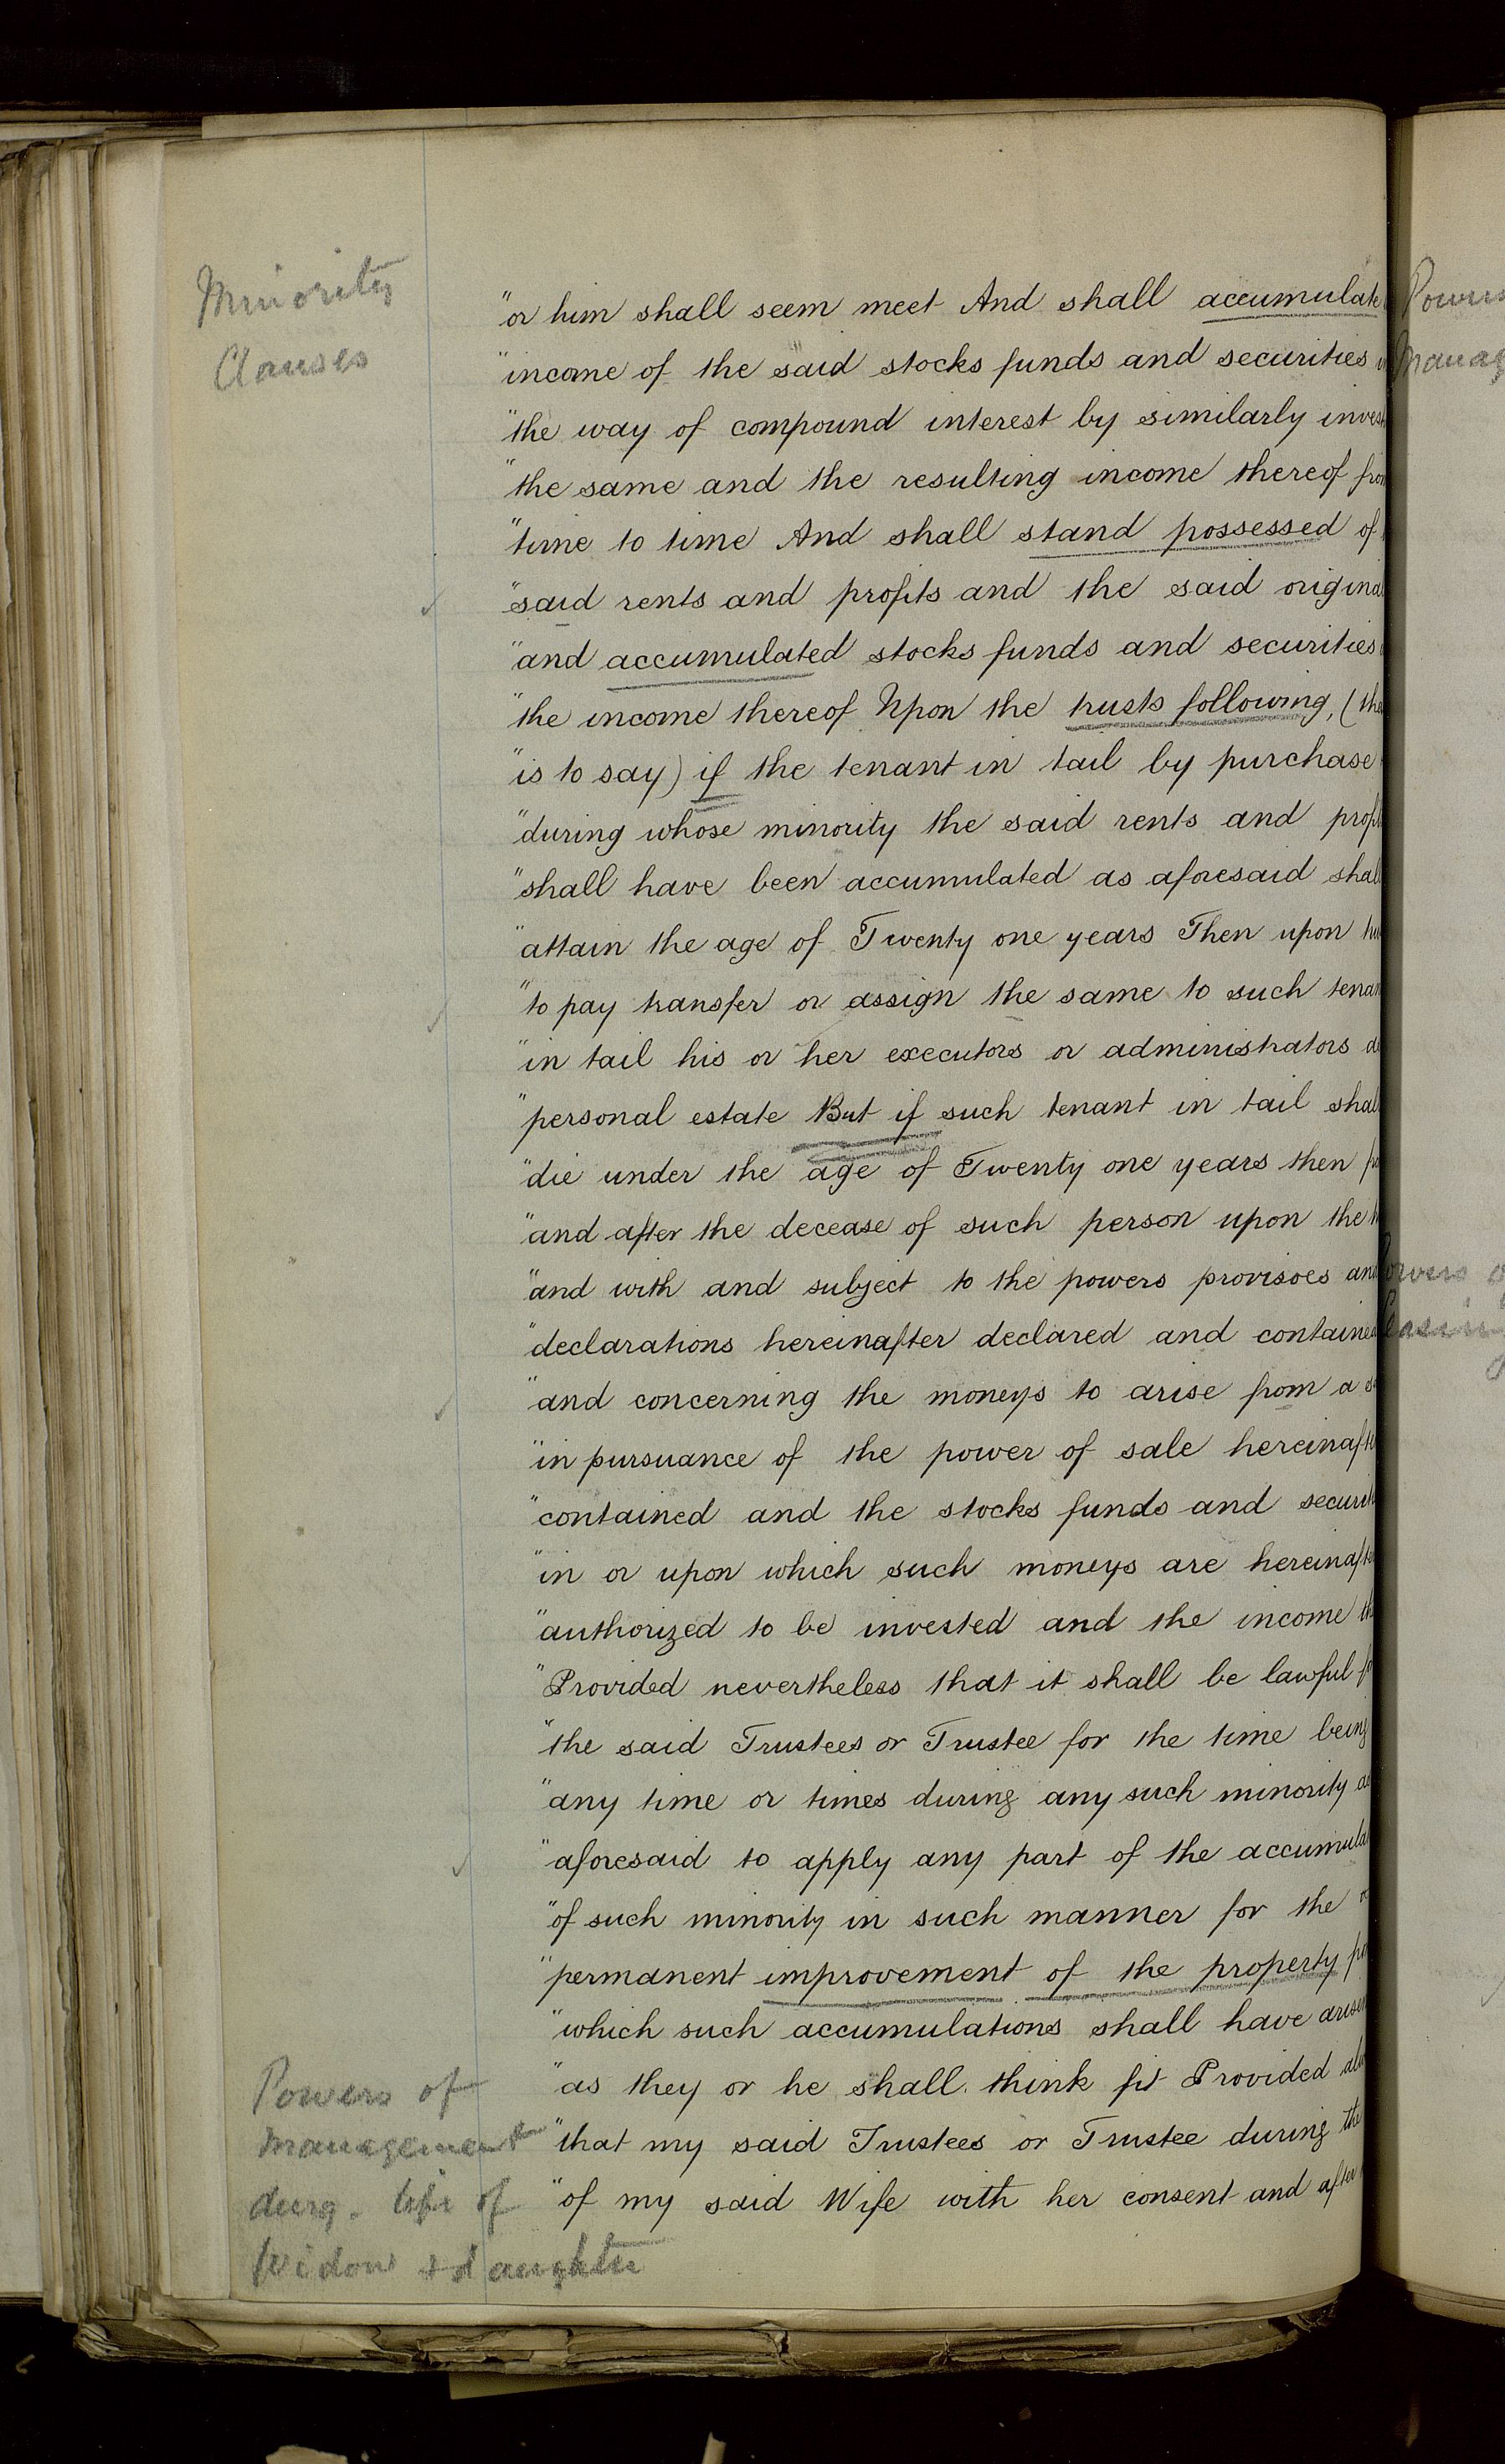 Minority
Clauses
"or him shall seem meet And shall accumulate
"income of the said stocks funds and securities
"the way of compound interest by similarly invest
"the same and the resulting income thereof fro
"time to time And shall stand possessed of
"said rents and profits and the said origina
"and accumulated stocks funds and securities
"the income thereof Upon the trusts following, (tha
"is to say) if the tenant in tail by purchase
"during whose minority the said rents and profi
"shall have been accumulated as aforesaid shal
"attain the age of Twenty one years Then upon tru
"to pay transfer or assign the same to such tenan
"in tail his or her executors or administrators
"personal estate But if such tenant in tail shal
"die under the age of Twenty one years then
"and after the decease of such person upon the
"and with and subject to the powers provisoes and
"declarations hereinafter declared and contained
"and concerning the moneys to arise from a
"in pursuance of the power of sale hereinafte
"contained and the stocks funds and securit
"in or upon which such moneys are hereinafte
"authorized to be invested and the income
"Provided nevertheless that it shall be lawful
"the said Trustees or Trustee for the time being
"any time or times during any such minority as
"aforesaid to apply any part of the accumula
"of such minority in such manner for the
"permanent improvement of the property
"which such accumulations shall have arisen
"as they or he shall think fit Provided also
"that my said Trustees or Trustee during the
"of my said Wife with her consent and after
Powers of
management
durg. life of
Widow & daughter
Powers
Manag
owers
easing